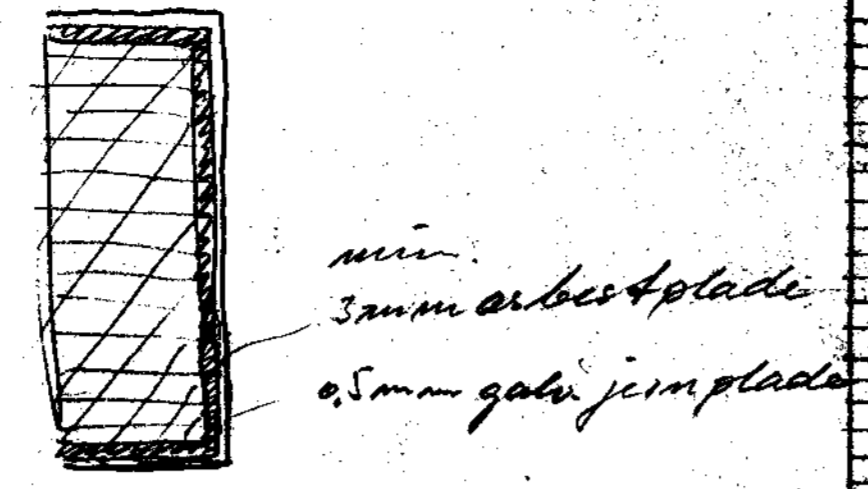 min.
3mm asbestplade
0,5mm galv. jernplade